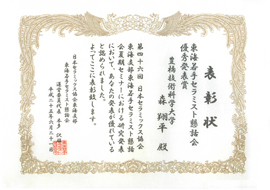 表彰状
東海若手セラミスト懇話会
優秀発表賞
豊橋技術科学大学
森 翔平 殿
第四十六回 日本セラミックス協会
東海支部東海若手セラミスト懇話
会夏期セミナーにおける研究発表
において、あなたの発表が優れている
と認められました。
よってここに表彰致します。
平成二十五年六月二
日本セラミックス協会
東海若手セラミスト懇話会
運営委員代表